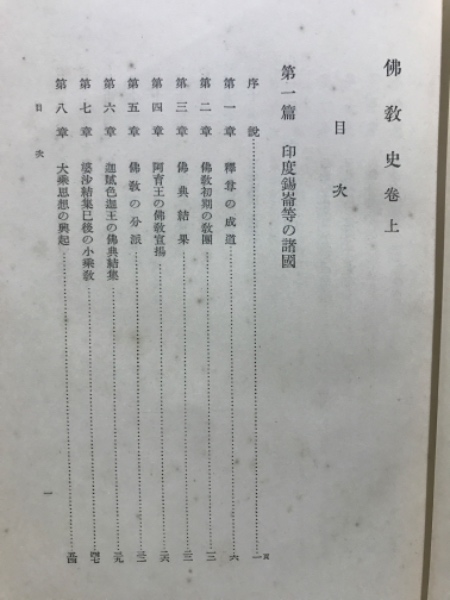 佛教史 卷上
目次
第一篇 印度錫崙等の諸國
序說 一頁
第一章 釋尊の成道 六
第二章 佛敎初期の敎團
第三章 佛典結果
第四章 阿育王の佛敎宣揚
第五章 佛敎の分派
第六章 迦膩色迦王の佛典結集
第七章 婆沙結集已後の小乘敎
第八章 大乘思想の興起
目次
一